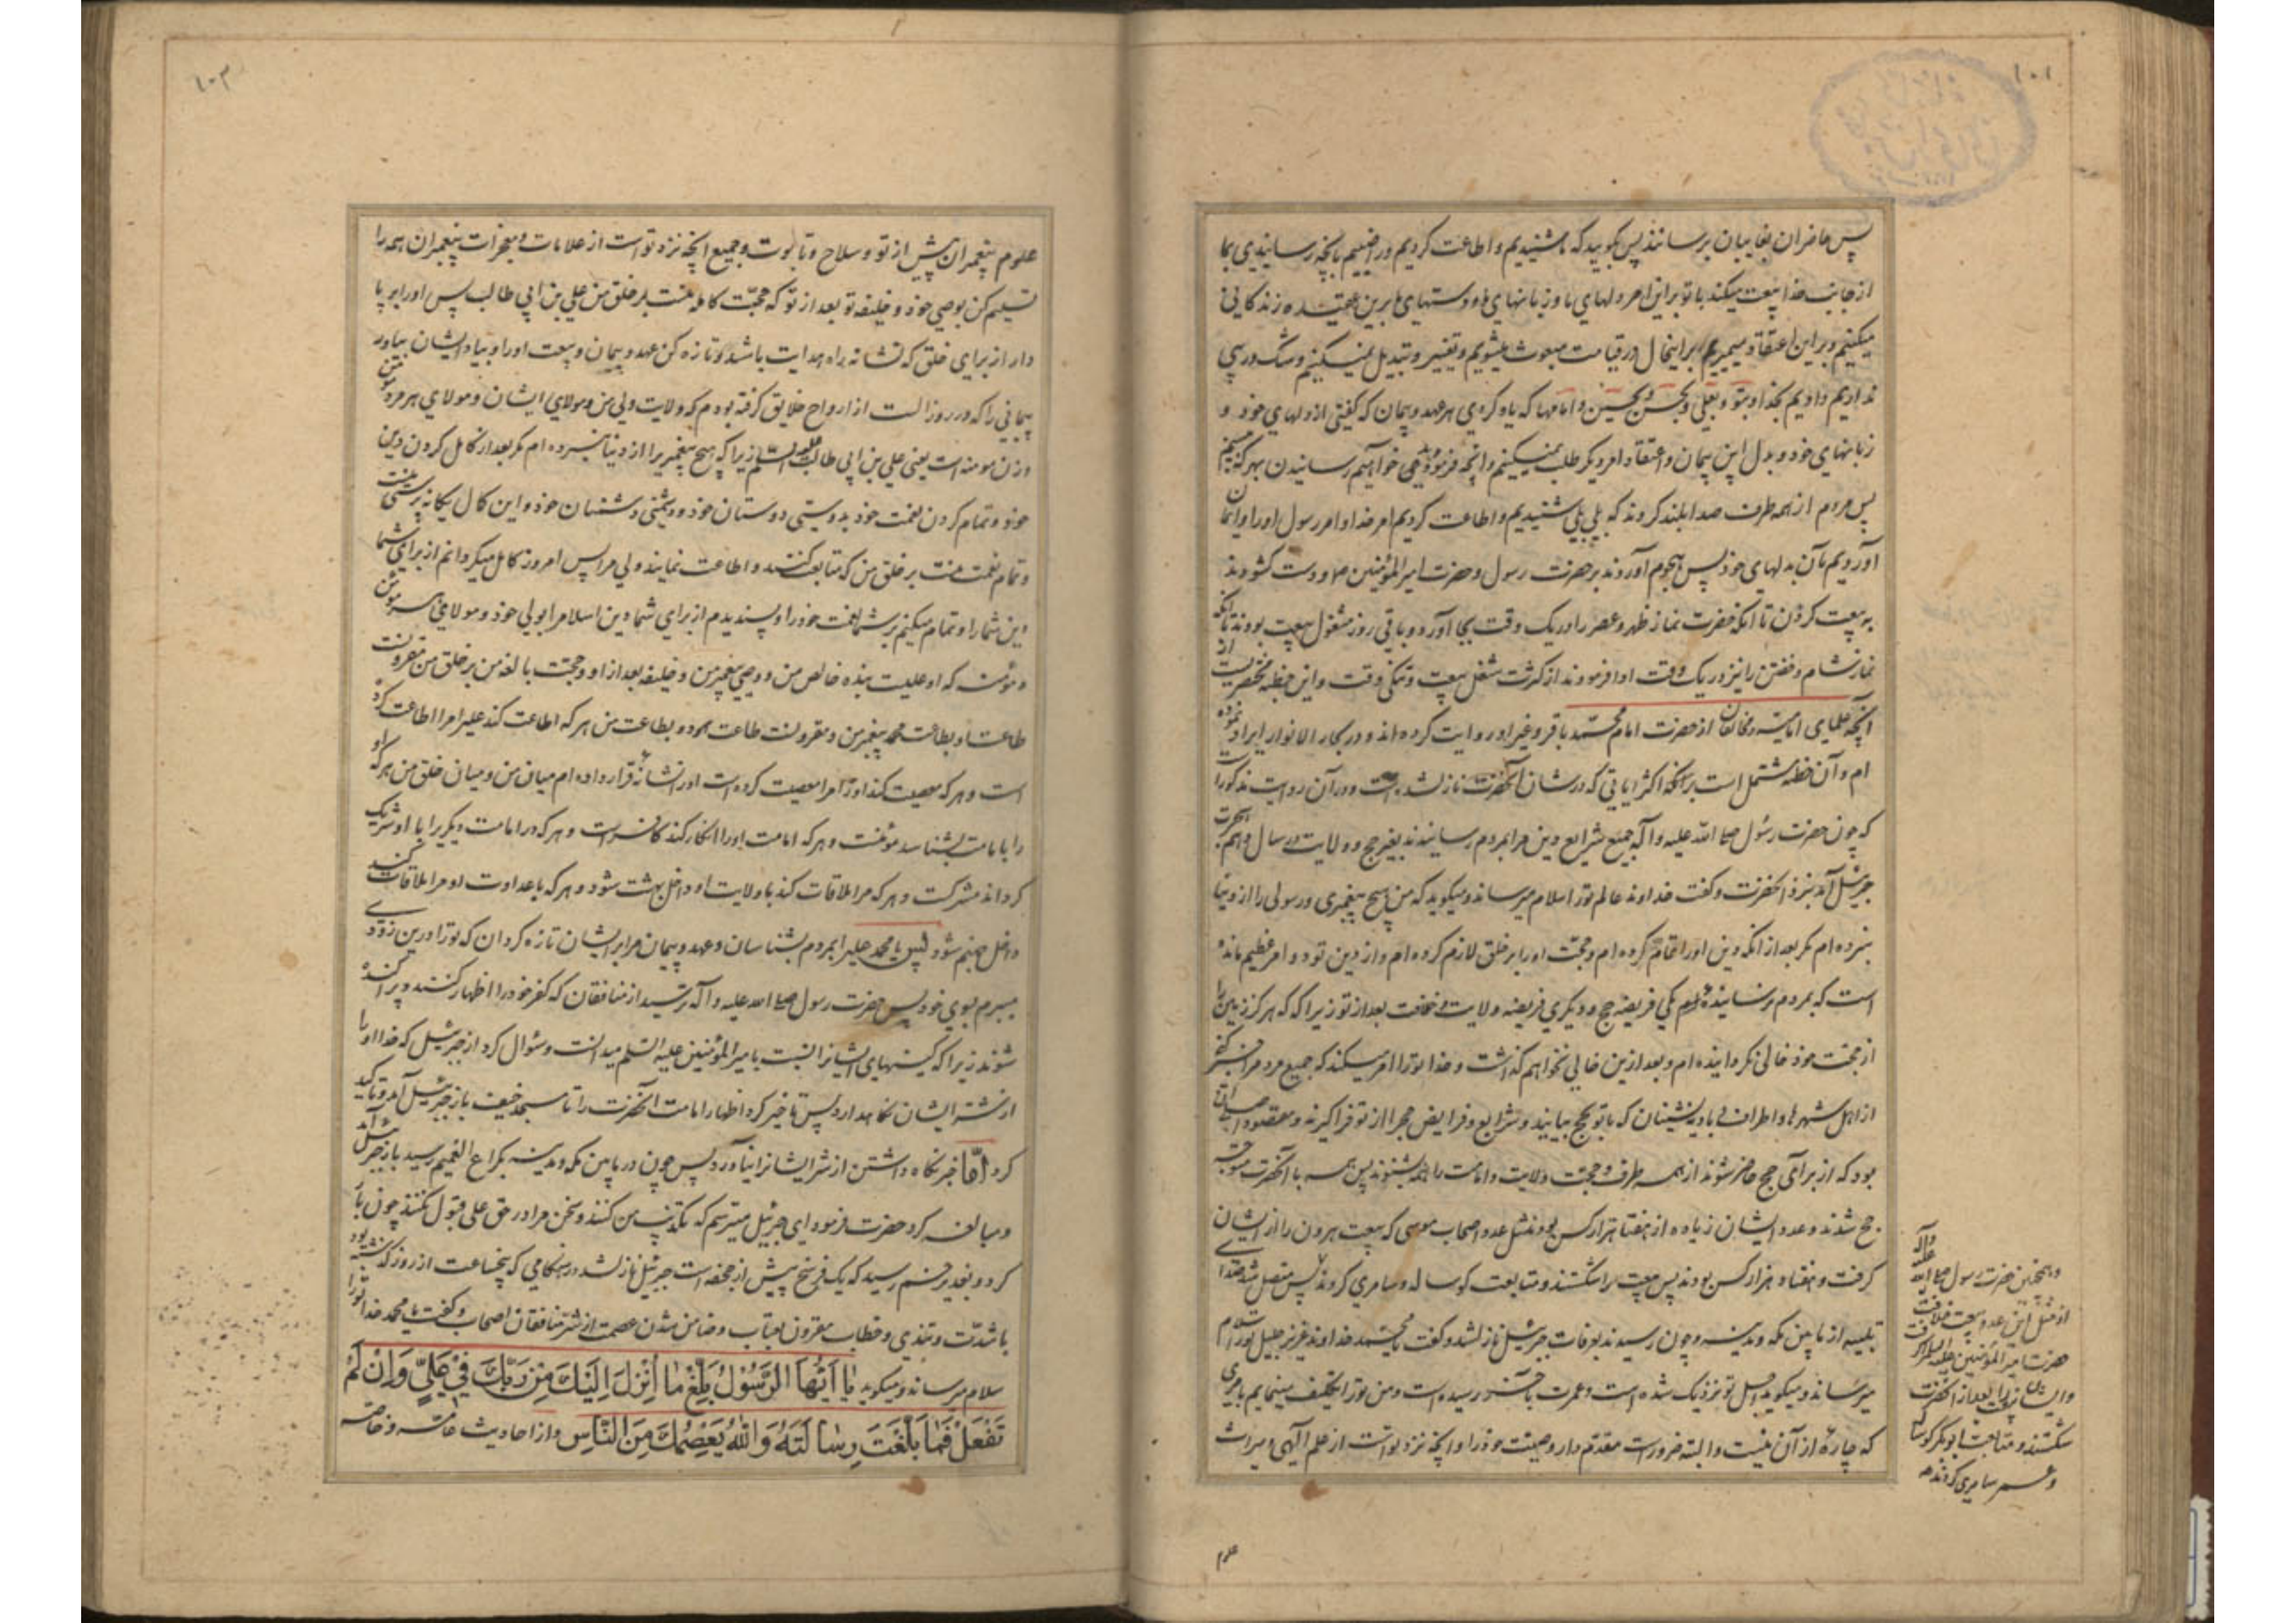 ۱۰۱
پس حاضران بغایبان برسانند پس بگویید که ما شنیدیم و اطاعت کردیم و راضییم بآنچه رسانیدی بما
از جانب خدا بیعت میکند با تو براین امر دلهای ما و زبانهای ما و دستهای ما برین عقیده زندگانی
میکنیم و براین اعتقاد میمیریم و براینحال در قیامت مبعوث میشویم و تغییر و تبدیل نمیکنیم و شک و ریبی
نداریم و دادیم بخدا و بتو و بعلی و بحسن و بحسین و امامها که یاد کردی هر عهد و پیمان که گفتی از دلهای خود و
زبانهای خود و بدل این پیمان و اعتقاد امر دیگر طلب نمیکنیم و آنچه فرمودهٔ می خواهیم رسانیدن بهر که بینیم
پس مردم از همه طرف صدا بلند کردند که بلی بلی شنیدیم و اطاعت کردیم امر خدا و امر رسول او را و ایمان
آوردیم بآن بدلهای خود پس هجوم آوردند بر حضرت رسول و حضرت امیرالمؤمنین ص و دست گشودند
به بیعت کردن تا آنکه حضرت نماز ظهر و عصر را در یک وقت بجا آورد و باقی روز مشغول بیعت بودند تا آنکه
نماز شام و خفتن را نیز در یک وقت ادا فرمودند از کثرت شغل بیعت و تنگی وقت و این خطبه مختصریست از
آنچه علمای امامیه و مخالفان از حضرت امام محمد باقر و غیر او روایت کرده اند و در بحار الانوار ایراد نموده
ام و آن خطبه مشتمل است بر آنکه اکثر آیاتی که در شان آنحضرت نازل شده است و در آن روایت مذکور است
که چون حضرت رسول صلی الله علیه و آله جمیع شرایع دین مرا بمردم رسانیدند بغیر حج و ولایت در سال دهم هجرت
جبرئیل آمد بنزد آنحضرت و گفت خداوند عالم تو را سلام میرساند و میگوید که من هیچ پیغمبری و رسولی را از دنیا
نبرده ام مگر بعد از آنکه دین او را تمام کرده ام و حجت او را بر خلق لازم کرده ام و از دین تو دو امر عظیم مانده
است که بمردم نرسانیدهٔ یکی فریضه حج و دیگری فریضه ولایت و خلافت بعد از تو زیرا که هرگز زمین را
از حجت خود خالی نگردانیده ام و بعد ازین خالی نخواهم گذاشت و خدا تو را امر میکند که جمیع مردم را خبر کنی
از اهل شهرها و اطراف و بادیه نشینان که با تو بحج بیایند و شرایع و فرایض حج را از تو فرا گیرند و مقصود اصلی آن
بود که از برای حج حاضر شوند از همه طرف و حجت ولایت و امامت را همه بشنوند پس همه با آنحضرت متوجه
حج شدند و عدد ایشان زیاده از هفتاد هزار کس بودند مثل عدد اصحاب موسی که بیعت هرون را از ایشان
گرفت و هفتاد هزار کس بودند پس بیعت را شکستند و متابعت گوساله و سامری کردند پس متصل شد صدای
تلبیه از مابین مکه و مدینه و چون رسیدند بعرفات جبرئیل نازل شد و گفت یا محمد خداوند عزیز جلیل تو را سلام
میرساند و میگوید اجل تو نزدیک شده است و عمرت بآخر رسیده است و من تو را تکلیف مینمایم بامری
که چارهٔ از آن نیست و البته ضرورست مقدم دار وصیت خود را و آنچه نزد تو است از علم آلهی و میراث
علوم
و همچنین حضرت رسول صلی الله علیه و آله
از مثل این عدد بیعت خلافت
حضرت امیر المؤمنین علیه السلم گرفت
و ایشان نیز بعد از آنحضرت
شکستند و متابعت ابوبکر گوساله
و عمر سامری کردند
۱۰۲
علوم پیغمبران پیش از تو و سلاح و تابوت و جمیع آنچه نزد تو است از علامات و معجزات پیغمبران همه را
تسلیم کن بوصی خود و خلیفه تو بعد از تو که حجت کامله منست بر خلق من علی بن ابی طالب پس او را بر پا
دار از برای خلق که نشانه راه هدایت باشد و تازه کن عهد و پیمان و بیعت او را و بیاد ایشان بیاور
پیمانی را که در روز الست از ارواح خلایق گرفته بودم که ولایت ولی من و مولای ایشان و مولای هر مرد مؤمن
و زن مومنه است یعنی علی بن ابی طالب علیه السلم زیرا که هیچ پیغمبر را از دنیا نبرده ام مگر بعد از کامل کردن دین
خود و تمام کردن نعمت خود بدوستی دوستان خود و دشمنی دشمنان خود و این کمال یگانه پرستی منست
و تمام نعمت منست بر خلق من که متابعت کنند و اطاعت نمایند ولی مرا پس امروز کامل میگردانم از برای شما
دین شما را و تمام میکنم بر شما نعمت خود را و پسندیدم از برای شما دین اسلام را بولی خود و مولای هر مؤمن
و مؤمنه که او علیست بنده خالص من و وصی پیغمبر من و خلیفه بعد از او و حجت بالغه من بر خلق من مقرونست
طاعت او بطاعت محمد پیغمبر من و مقرونست طاعت هر دو بطاعت من هر که اطاعت کند علی را مرا اطاعت کرده
است و هر که معصیت کند او را مرا معصیت کرده است او را نشانهٔ قرار داده ام میان من و میان خلق من هر که او
را بامامت بشناسد مؤمنست و هر که امامت او را انکار کند کافرست و هر که در امامت دیگری را با او شریک
گرداند مشرکست و هر که مرا ملاقات کند با ولایت او داخل بهشت شود و هر که با عداوت او مرا ملاقات کند
داخل جهنم شود پس یا محمد علی را بمردم بشناسان و عهد و پیمان مرا بر ایشان تازه گردان که تو را درین زودی
میبرم بسوی خود پس حضرت رسول صلی الله علیه و آله ترسید از منافقان که کفر خود را اظهار کنند و پراکنده
شوند زیرا که کینهای ایشانرا نسبت بامیرالمؤمنین علیه السلم میدانست و سؤال کرد از جبرئیل که خدا او را
از شر ایشان نگاهدارد پس تاخیر کرد اظهار امامت آنحضرت را تا مسجد خیف باز جبرئیل آمد و تاکید
کرد امّا خبر نگاه داشتن از شر ایشانرا نیاورد پس چون در مابین مکه و مدینه بکراع الغمیم رسید باز جبرئیل آمد
و مبالغه کرد حضرت فرمود ای جبرئیل میترسم که تکذیب من کنند و سخن مرا در حق علی قبول نکنند چون بار
کرد و بغدیر خم رسید که یک فرسخ پیش از جحفه است جبرئیل نازل شد در هنگامی که پنجساعت از روز گذشته بود
با شدت و تهدید و خطاب مقرون بعتاب و ضامن شدن عصمت از شر منافقان اصحاب و گفت یا محمد خدا تو را
سلام میرساند و میگوید یا اَیُّهَا الرَّسُوْلُ بَلِّغْ ما اُنْزِلَ اِلَیْكَ مِنْ رَبِّكَ فِيْ عَلِيٍّ وَاِنْ لَمْ
تَفْعَلْ فَمَا بَلَّغْتَ رِسَالَتَهُ وَاللّٰهُ یَعْصِمُكَ مِنَ النَّاسِ و از احادیث عامه و خاصه